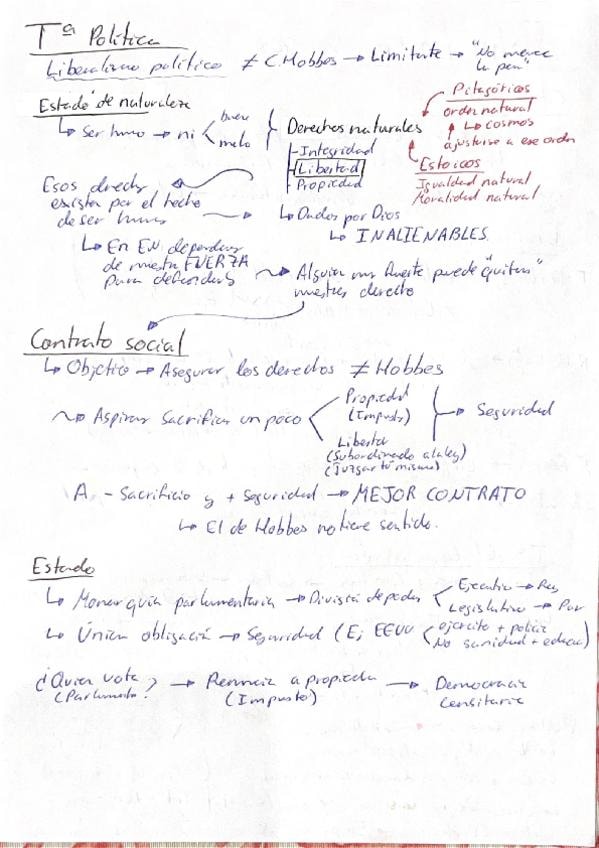 Tª Política
Liberalismo político ≠ C. Hobbes → Limitante → "No merece
la pena"
Estado de naturaleza
↳ Ser humo → ni < bueno
malo
Derechos naturales
- Integridad
- Libertad
- Propiedad
Pitagóricos
orden natural
↳ cosmos
ajustarse a ese orden
Estoicos
Igualdad natural
Moralidad natural
Esos derechos
existen por el hecho
de ser humo
↳ Dados por Dios
↳ INALIENABLES
↳ En EN dependen
de nuestra FUERZA
para defenderlos
Alguien más fuerte puede "quitar"
nuestros derechos
Contrato social
↳ Objetivo → Asegurar los derechos ≠ Hobbes
Aspiran sacrificar un poco
Propiedad
(Impuesto)
Libertad
(Subordinado a la ley)
(Juzgar tú mismo)
→ Seguridad
A - Sacrificio y + Seguridad → MEJOR CONTRATO
↳ El de Hobbes no tiene sentido.
Estado
↳ Monarquía parlamentaria → División de poder < Ejecutivo → Rey
Legislativo → Par
↳ Única obligación → Seguridad (Ej EEUU < ejército + policía
No sanidad + educac)
¿Quién vota? → Renuncia a propiedad → Democracia
(Parlamento) (Impuesto) censitaria